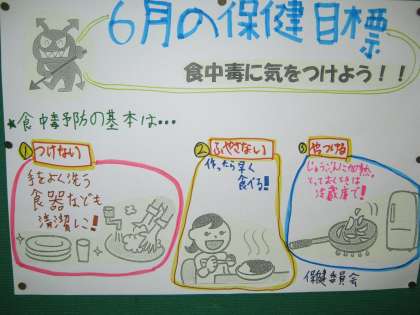 6月の保健目標
食中毒に気をつけよう！！
★食中毒予防の基本は…
① つけない
手をよく洗う
食器なども
清潔に！
② ふやさない
作ったら早く
食べる！！
③ やっつける
じゅうぶんに加熱、
とっておくときは
冷蔵庫で！
保健委員会